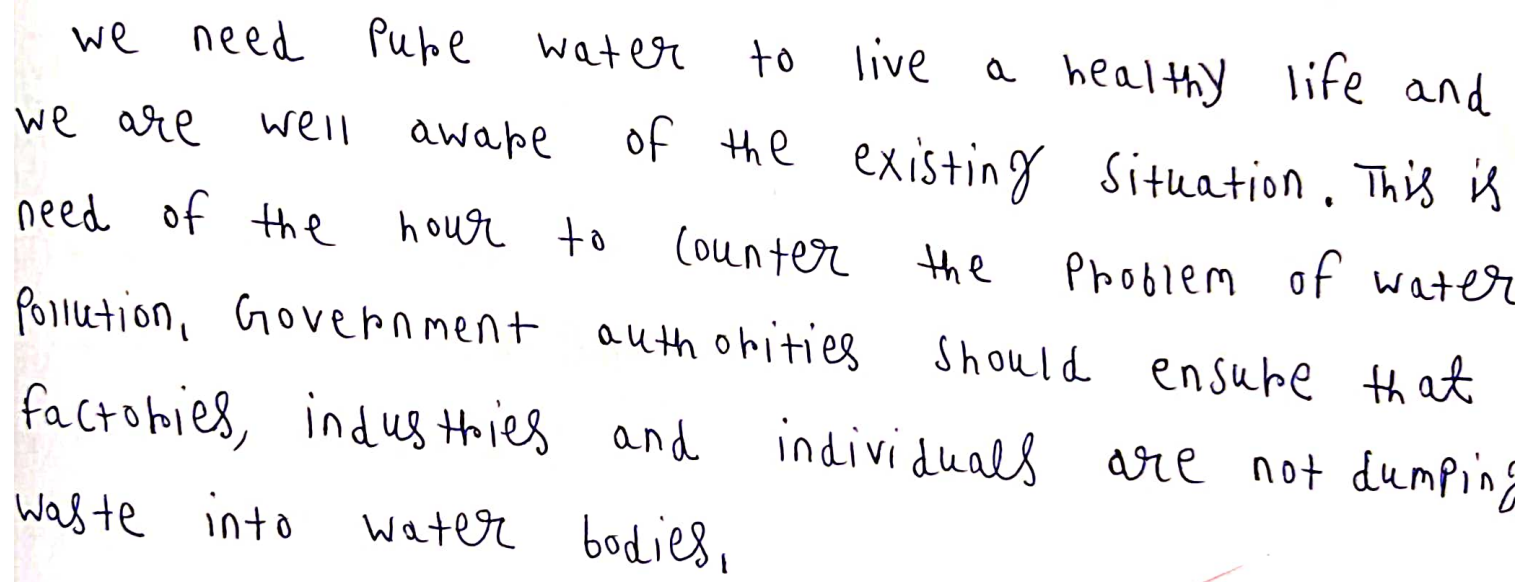 we need Pure water to live a healthy life and
we are well aware of the existing Situation. This is
need of the hour to counter the Problem of water
Pollution, Government authorities should ensure that
factories, industries and individuals are not dumping
waste into water bodies,